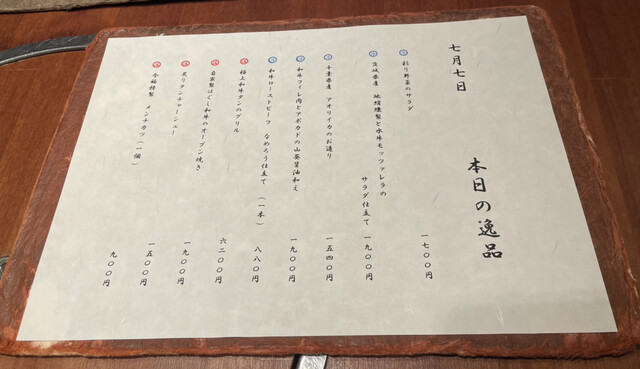 七月七日　本日の逸品
彩り野菜のサラダ　一七〇〇円
茨城県産　地蛤燻製と水牛モッツァレラの
サラダ仕立て　一九〇〇円
千葉県産　アオリイカのお造り　一五四〇円
和牛フィレ肉とアボカドの山葵醤油和え　一九〇〇円
和牛ローストビーフ　なめろう仕立て（一本）　八八〇円
極上和牛タンのグリル　六二〇〇円
自家製ほぐし和牛のオーブン焼き　一九〇〇円
炙りタンチャーシュー　一五〇〇円
今福特製　メンチカツ（一個）　九〇〇円